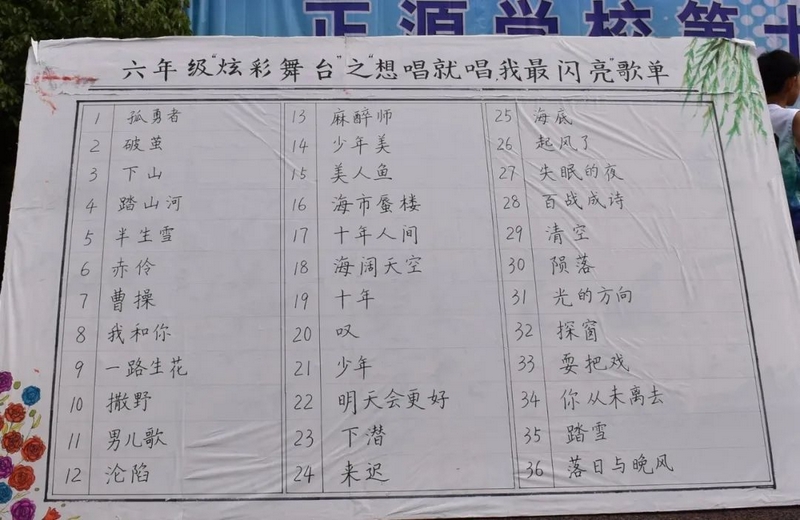 正源学校第十
六年级“炫彩舞台”之“想唱就唱我最闪亮”歌单
1 孤勇者
2 破茧
3 下山
4 踏山河
5 半生雪
6 赤伶
7 曹操
8 我和你
9 一路生花
10 撒野
11 男儿歌
12 沦陷
13 麻醉师
14 少年美
15 美人鱼
16 海市蜃楼
17 十年人间
18 海阔天空
19 十年
20 叹
21 少年
22 明天会更好
23 下潜
24 来迟
25 海底
26 起风了
27 失眠的夜
28 百战成诗
29 清空
30 陨落
31 光的方向
32 探窗
33 耍把戏
34 你从未离去
35 踏雪
36 落日与晚风